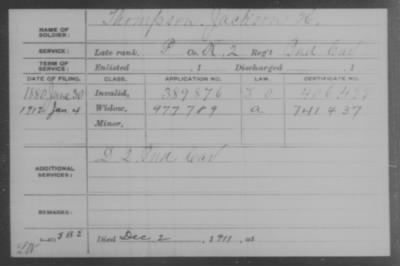 NAME OF SOLDIER: Thompson, Jackson H.
SERVICE: Late rank, P Co. K, 2 Reg't Ind Cav
TERM OF SERVICE: Enlisted , 1 Discharged , 1
DATE OF FILING. CLASS. APPLICATION NO. LAW. CERTIFICATE NO.
1880 June 30 Invalid, 389876
1912 Jan 4 Widow, 977789 a 741437
Minor,
ADDITIONAL SERVICES: D 2 Ind Cav
REMARKS:
Died Dec 2, 1911, at